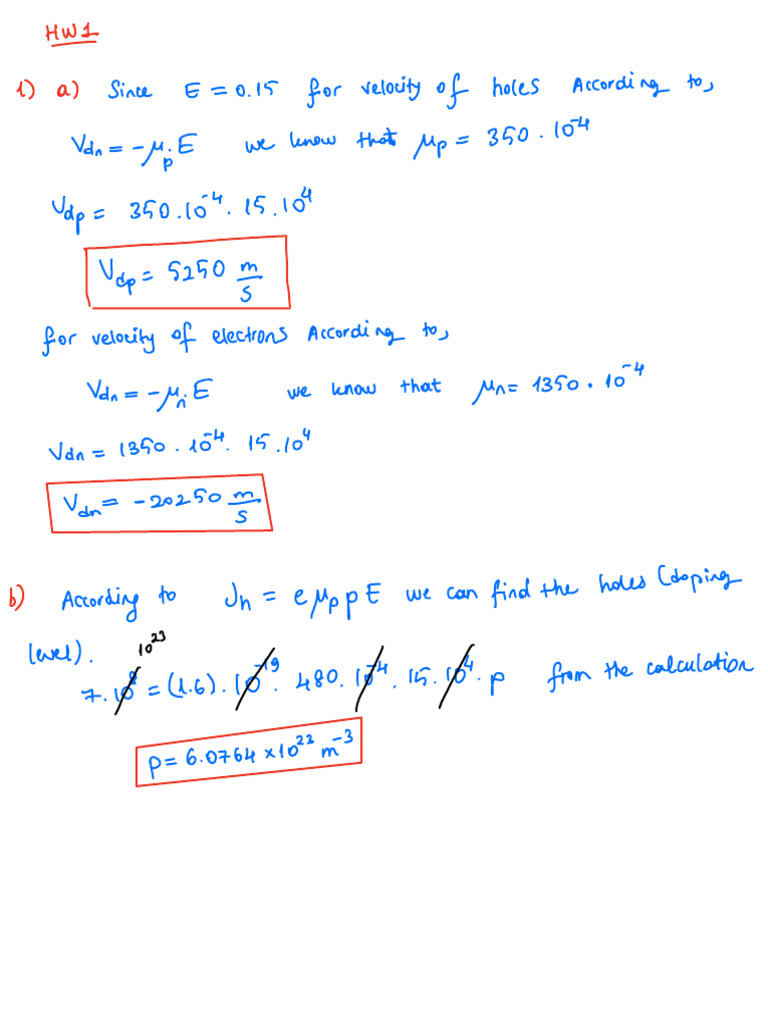 HW1
1) a) Since E = 0.15 for velocity of holes According to,
Vdn = -μp.E we know that μp = 350.10⁻⁴
Vdp = 350.10⁻⁴. 15.10⁴
Vdp = 5250 m/s
for velocity of electrons According to,
Vdn = -μn.E we know that μn = 1350.10⁻⁴
Vdn = 1350.10⁻⁴. 15.10⁴
Vdn = -20250 m/s
b) According to Jh = e μp p E we can find the holes (doping
level).
10²³
7.10⁸ = (1.6).10⁻¹⁹. 480.10⁻⁴. 15.10⁴. p from the calculation
p = 6.0764 x10²² m⁻³